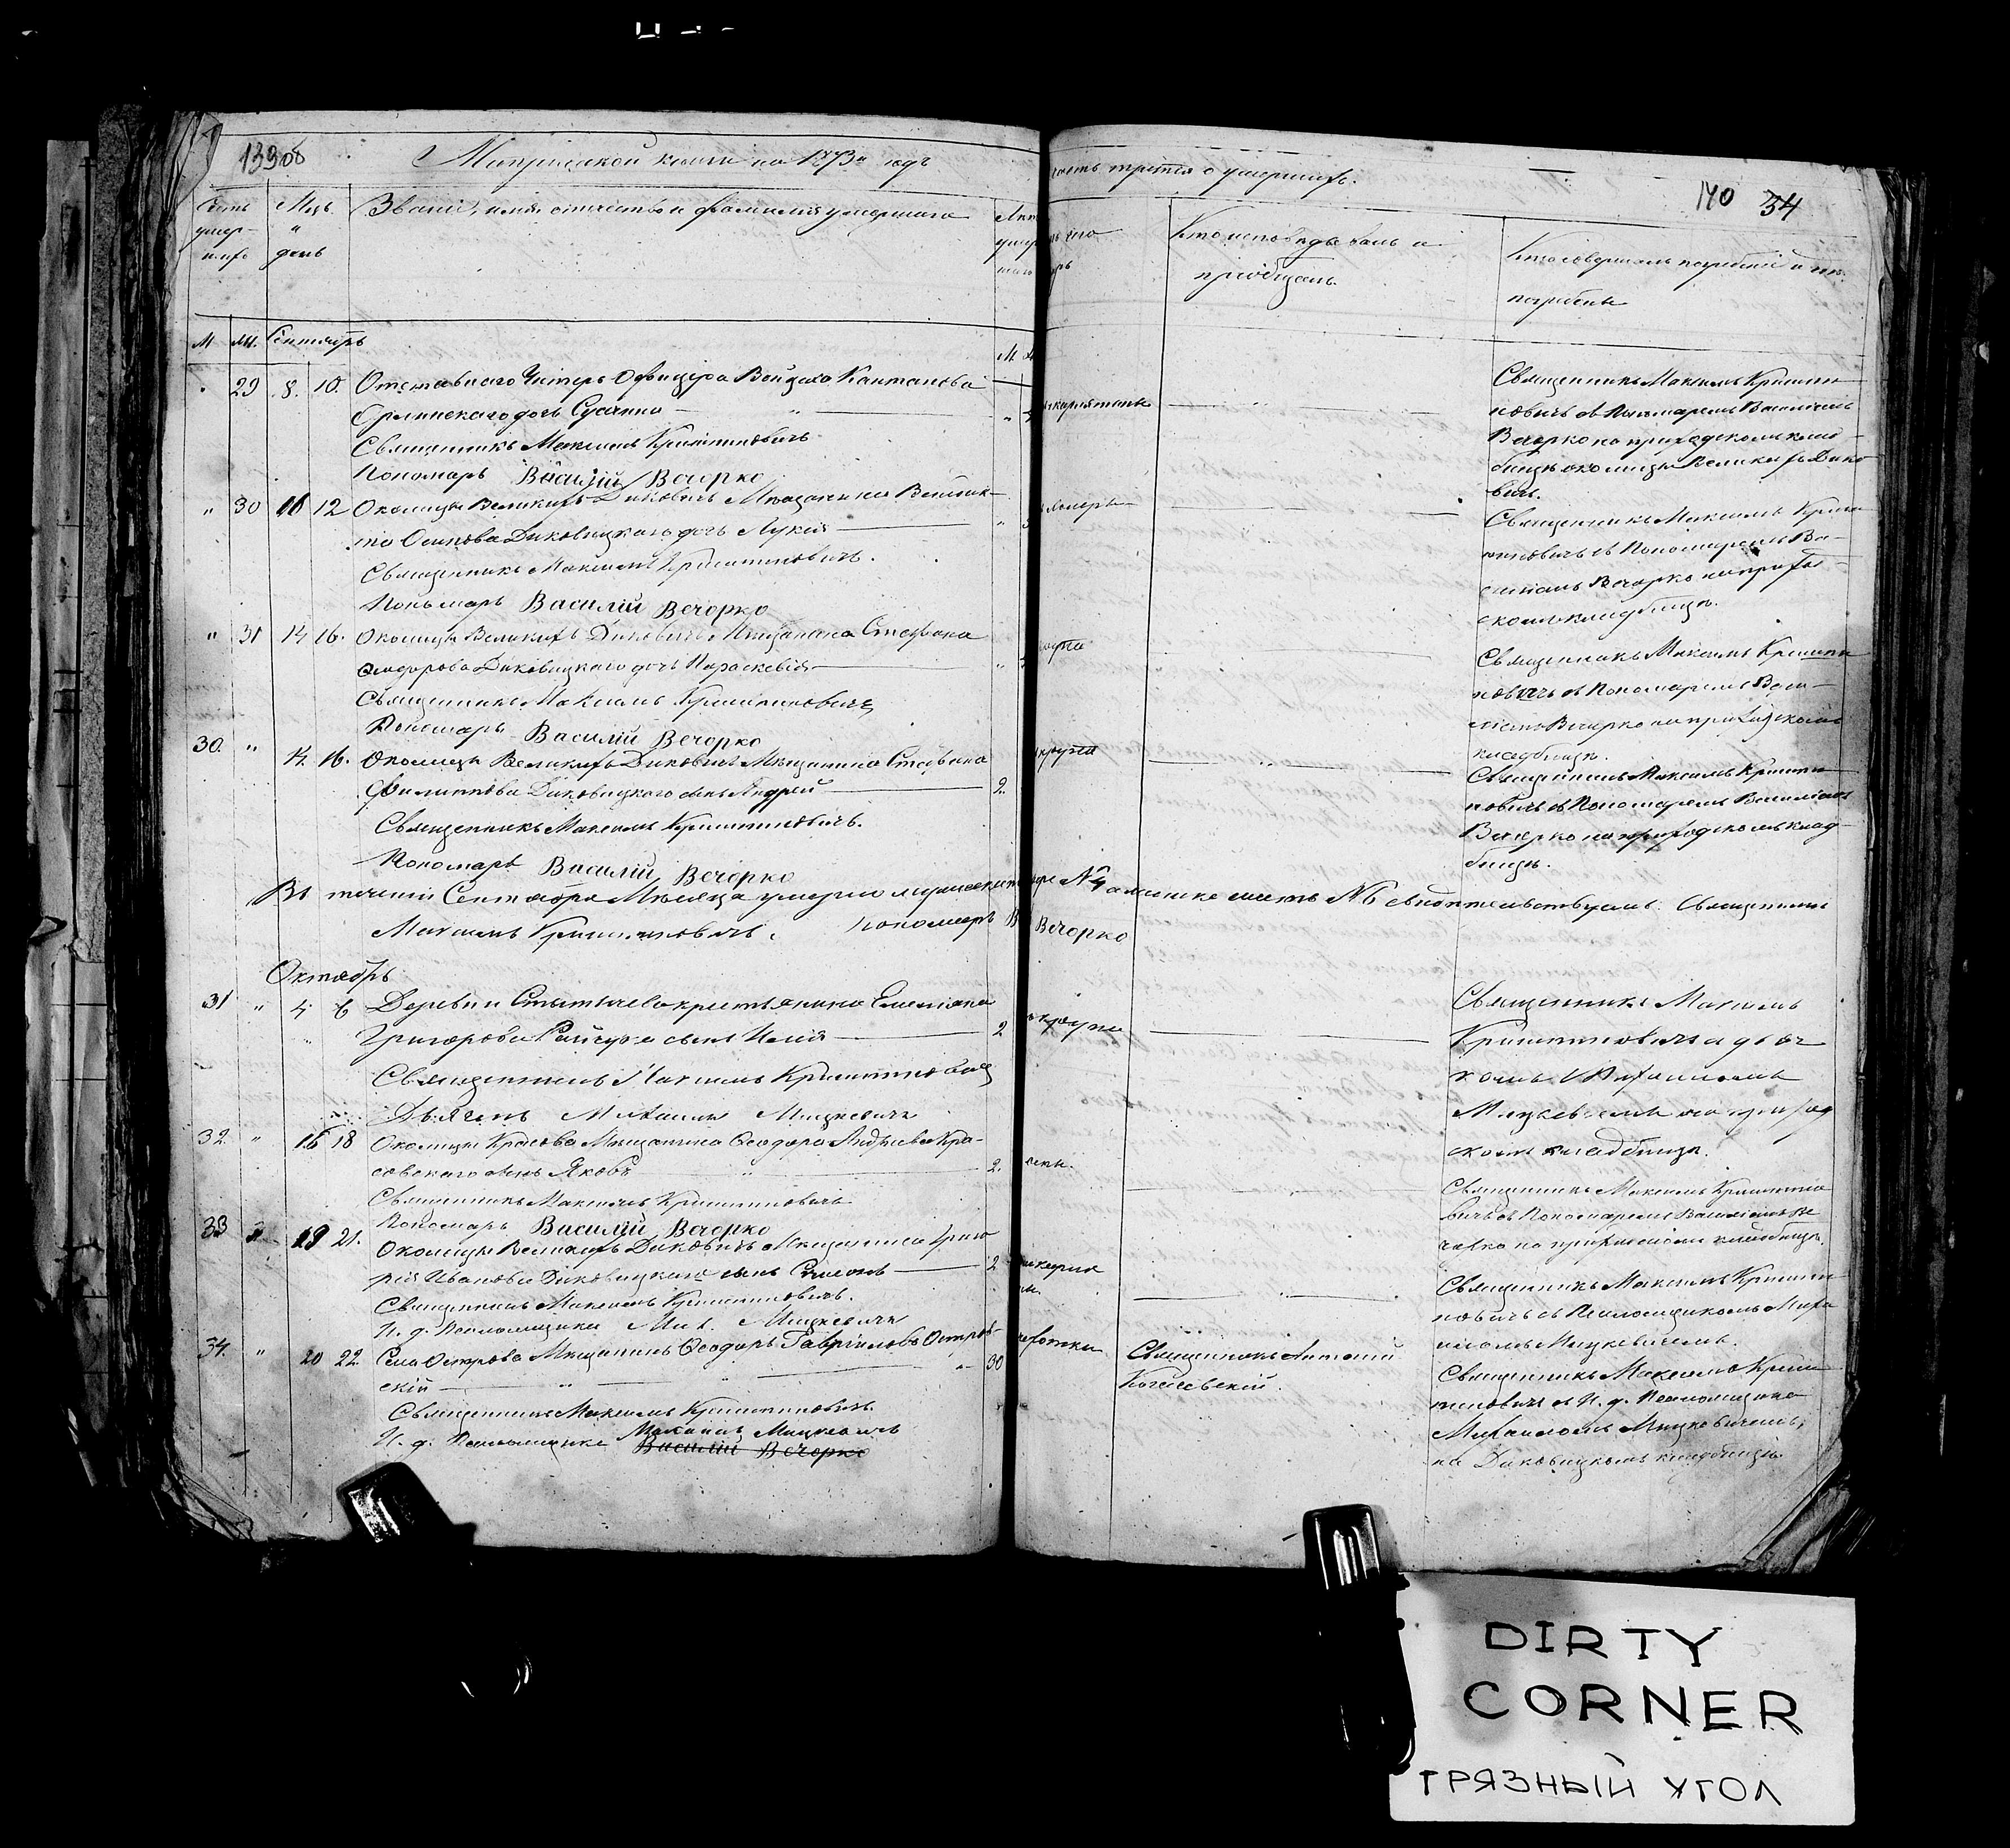 139об
Метрической книги на 1873й годъ
часть третья о умершихъ.
140 34
Счетъ умер-шихъ
Мцъ. и день
Званіе, имя отчество и фамилія умершаго
Кто исповѣдывалъ и пріобщалъ.
Кто совершалъ погребеніе и погребены
М. Ж. Сентябрь
" 29 8. 10. Отставного Унтеръ Офицера Войцеха Кантанова
дочь Сусанна —
Священникъ Максимъ Криштиновичъ
Пономарь Василій Вечорко
Священникъ Максимъ Кришти-
новичъ съ Пономаремъ Василіемъ
Вечорко на приходскомъ клад-
бищѣ околицы Великихъ Дико-
вичъ.
" 30 10 12 Околицы Великихъ Диковичъ Мѣщанина
Осипова Диковицкаго дочь Лукія —
Священникъ Максимъ Криштиновичъ.
Пономарь Василій Вечорко
Священникъ Максимъ Кришти-
новичъ съ Пономаремъ Ва-
силіемъ Вечорко на приход-
скомъ кладбищѣ.
" 31 14 16. Околицы Великихъ Диковичъ Мѣщанина Стефана
Ѳеодорова Диковицкаго дочь Параскевія —
Священникъ Максимъ Криштиновичъ
Пономарь Василій Вечорко
Священникъ Максимъ Кришти-
новичъ съ Пономаремъ Васи-
ліемъ Вечорко на приходскомъ
кладбищѣ.
30. " 14. 16. Околицы Великихъ Диковичъ Мѣщанина Стефана
Филиппова Диковицкаго сынъ Андрей — 2.
Священникъ Максимъ Криштиновичъ.
Пономарь Василій Вечорко
Священникъ Максимъ Кришти-
новичъ съ Пономаремъ Василіемъ
Вечорко на приходскомъ клад-
бищѣ.
Въ теченіи Сентября Мѣсяца умерло мужеска № 4 а женска шесть № 6 свидѣтельствуемъ. Священникъ
Максимъ Криштиновичъ. Пономарь В Вечорко
Октябрь
31 " 4 6 Деревни Стытычева крестьянина Емеліана
Григорова Райчука сынъ Илія — 2
Священникъ Максимъ Криштиновичъ
Дьячекъ Михаилъ Мицкевичъ
Священникъ Максимъ
Криштиновичъ дьяч-
комъ Михаиломъ
Мицкевичемъ на приход-
скомъ кладбищѣ.
32. " 16 18 Околицы Красова Мѣщанина Ѳеодора Андреева Кра-
совскаго сынъ Яковъ — 2.
Священникъ Максимъ Криштиновичъ
Пономарь Василій Вечорко
Священникъ Максимъ Криштино-
вичъ съ Пономаремъ Василіемъ Ве-
чорко на приходскомъ кладбищѣ.
33 " 19 21. Околицы Великихъ Диковичъ Мѣщанина Григо-
рія Иванова Диковицкаго сынъ Симеонъ — 2
Священникъ Максимъ Криштиновичъ.
И. д. Псаломщика Мих. Мицкевичъ
Священникъ Максимъ Кришти-
новичъ съ Псаломщикомъ Миха-
иломъ Мицкевичемъ.
34. " 20 22. Села Острова Мѣщанинъ Ѳеодоръ Гавріиловъ Остров-
скій — 30 чахотки
Священникъ Максимъ Криштиновичъ.
И. д. Псаломщика Михаилъ Мицкевичъ
Василій Вечорко
Священникъ Антоній
Священникъ Максимъ Криш-
тиновичъ съ И. д. Псаломщика
Михаиломъ Мицкевичемъ,
на Диковицкомъ кладбищѣ.
DIRTY
CORNER
ГРЯЗНЫЙ УГОЛ